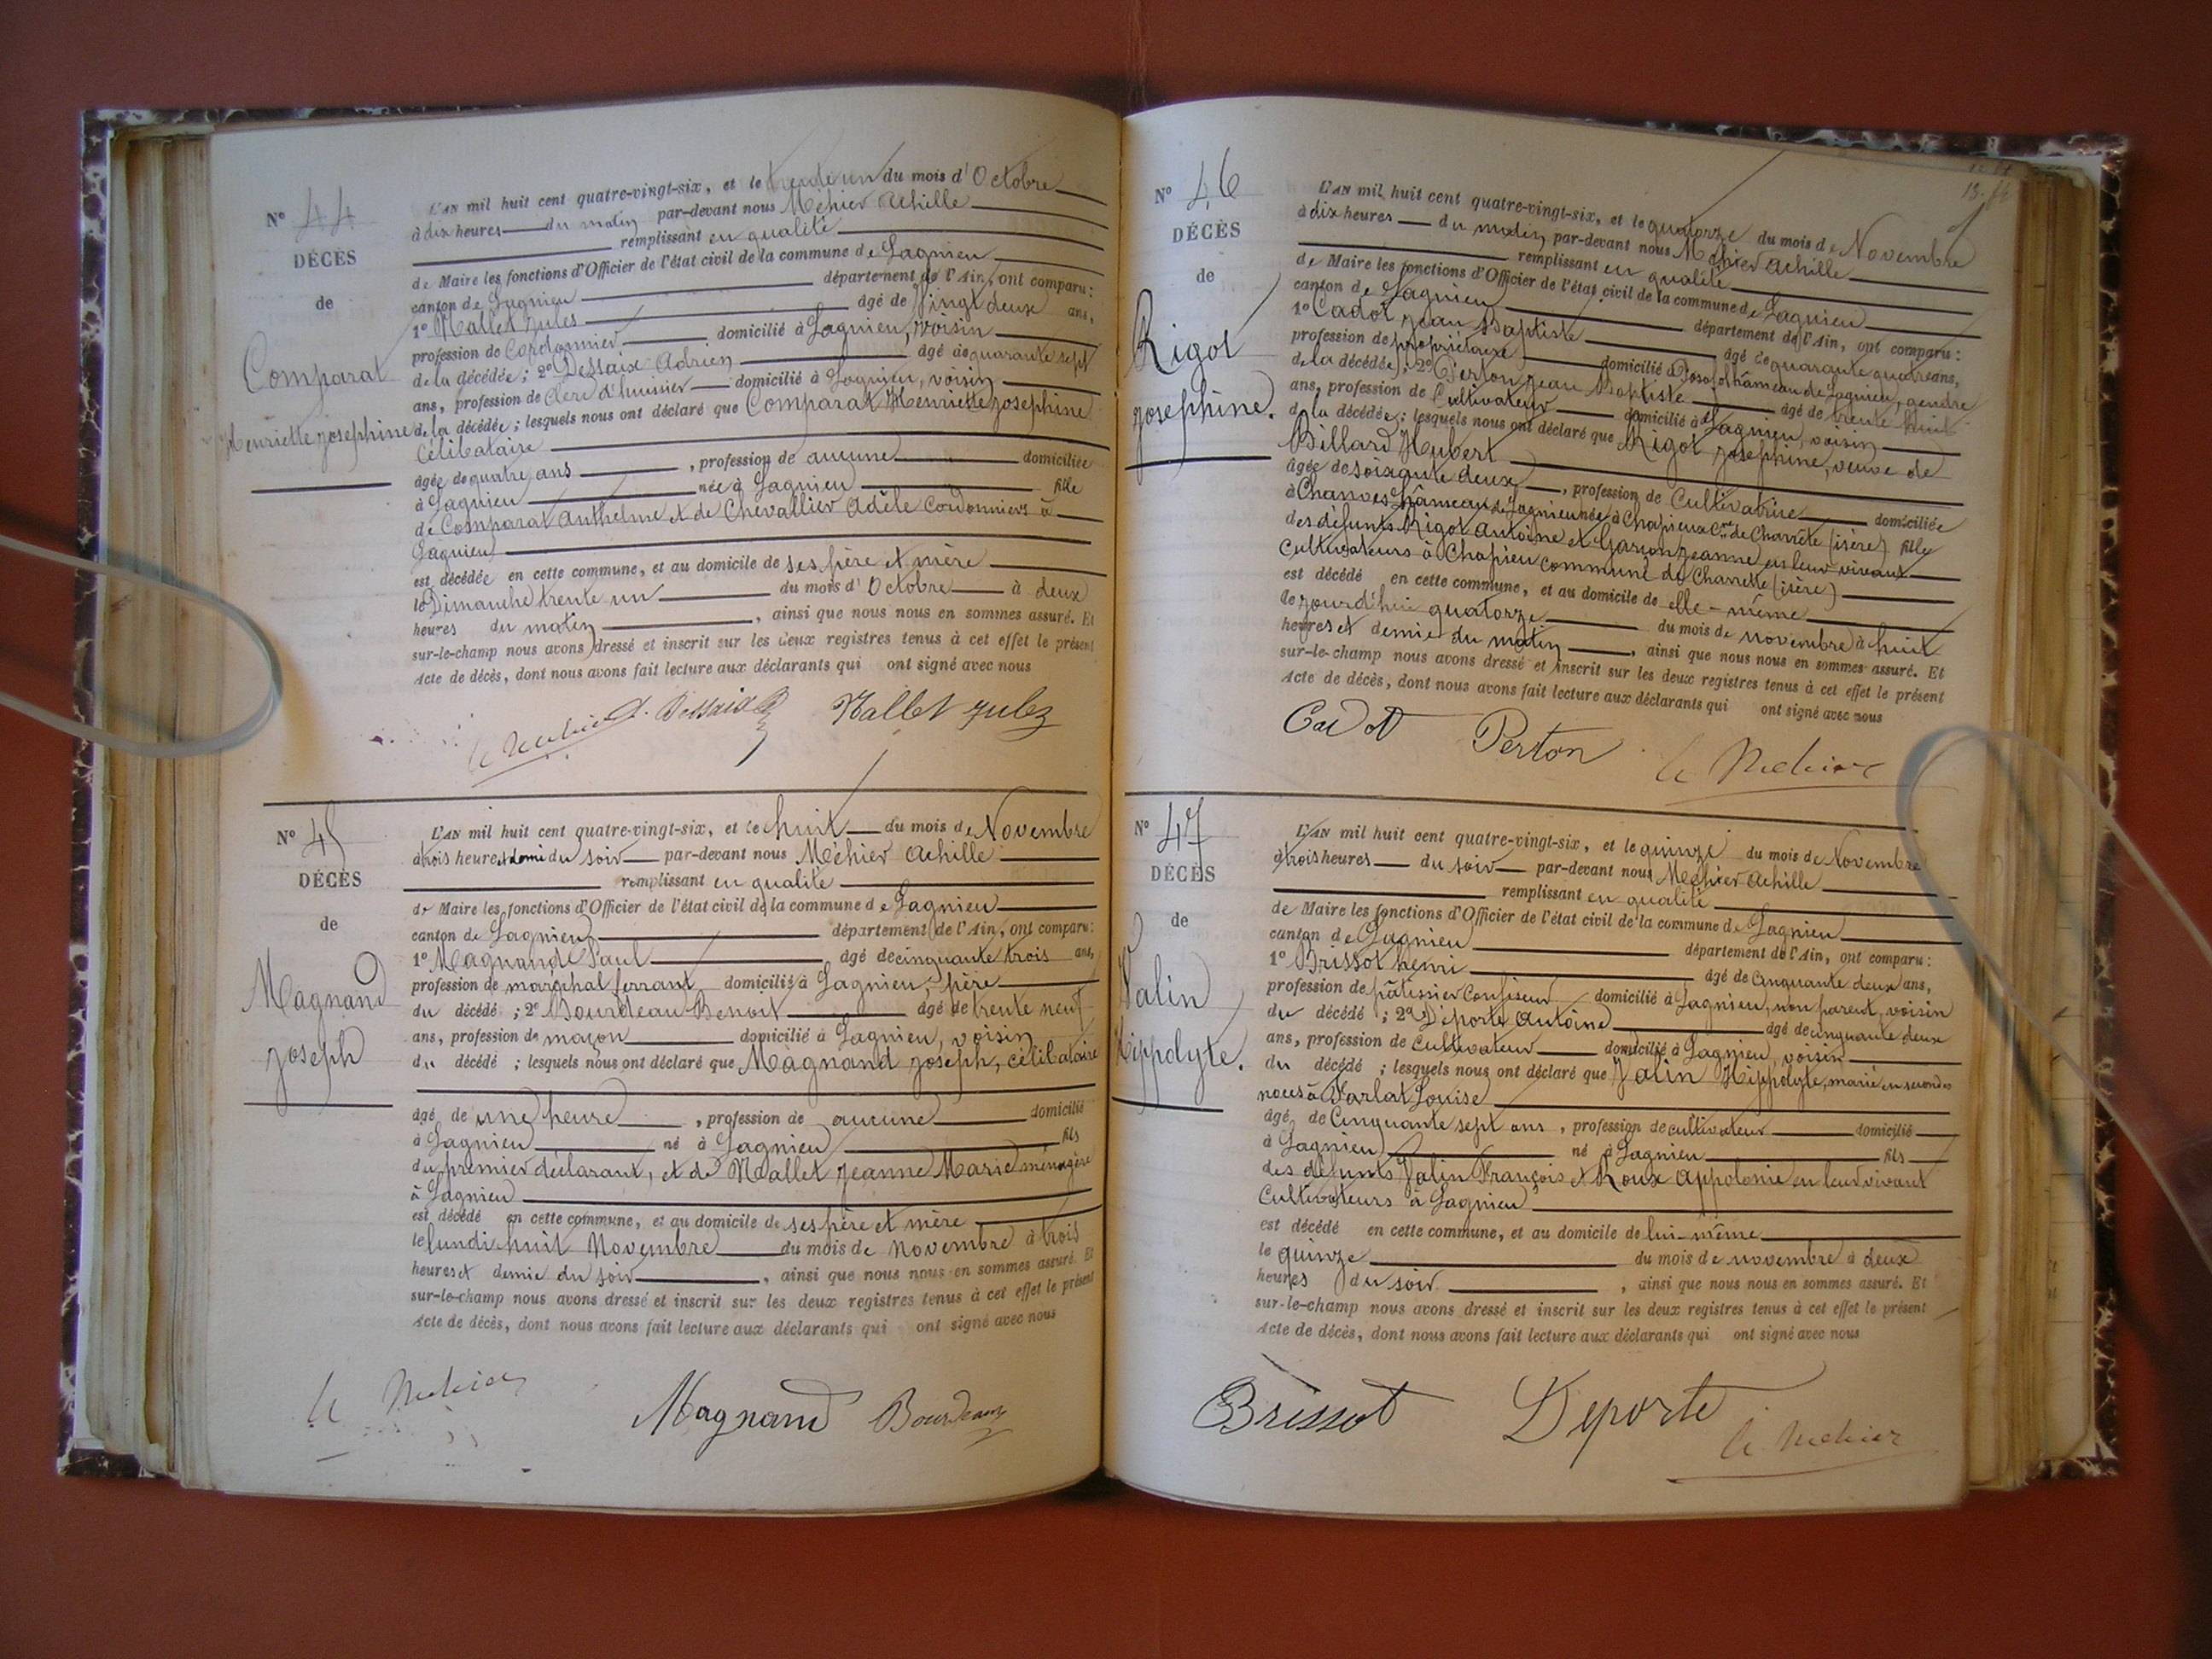 N° 44
DÉCÈS
de
Comparat
Henriette Josephine
L'AN mil huit cent quatre-vingt-six, et le trente un du mois d'Octobre
à dix heures du matin par-devant nous Méhier Achille
remplissant en qualité
de Maire les fonctions d'Officier de l'état civil de la commune de Lagnieu
canton de Lagnieu département de l'Ain, ont comparu:
1° Mallet Jules âgé de vingt deux ans,
profession de Cordonnier domicilié à Lagnieu, voisin
de la décédée; 2° Dessaix Adrien âgé de quarante sept
ans, profession de Clerc d'huissier domicilié à Lagnieu, voisin
de la décédée; lesquels nous ont déclaré que Comparat Henriette Josephine
Célibataire
âgée de quatre ans, profession de aucune domiciliée
à Lagnieu née à Lagnieu fille
de Comparat Anthelme et de Chevallier Adèle Cordonniers à
Lagnieu
est décédée en cette commune, et au domicile de ses père et mère
le Dimanche trente un du mois d'Octobre à deux
heures du matin, ainsi que nous nous en sommes assuré. Et
sur-le-champ nous avons dressé et inscrit sur les deux registres tenus à cet effet le présent
Acte de décès, dont nous avons fait lecture aux déclarants qui ont signé avec nous
A. Dessaix Mallet Jules
N° 45
DÉCÈS
de
Magnand
Joseph
L'AN mil huit cent quatre-vingt-six, et le huit du mois de Novembre
à trois heures et demie du soir par-devant nous Méhier Achille
remplissant en qualité
de Maire les fonctions d'Officier de l'état civil de la commune de Lagnieu
canton de Lagnieu département de l'Ain, ont comparu:
1° Magnand Paul âgé de cinquante trois ans,
profession de maréchal ferrant domicilié à Lagnieu, père
du décédé; 2° Bourdeau Benoit âgé de trente neuf
ans, profession de maçon domicilié à Lagnieu, voisin
du décédé; lesquels nous ont déclaré que Magnand Joseph, célibataire
âgé de une heure, profession de aucune domicilié
à Lagnieu né à Lagnieu fils
du premier déclarant, et de Mallet Jeanne Marie ménagère
à Lagnieu
est décédé en cette commune, et au domicile de ses père et mère
le lundi huit Novembre du mois de Novembre à trois
heures et demie du soir, ainsi que nous nous en sommes assuré. Et
sur-le-champ nous avons dressé et inscrit sur les deux registres tenus à cet effet le présent
Acte de décès, dont nous avons fait lecture aux déclarants qui ont signé avec nous
Magnand Bourdeau
N° 46
DÉCÈS
de
Rigot
Josephine.
L'AN mil huit cent quatre-vingt-six, et le quatorze du mois de Novembre
à dix heures du matin par-devant nous Méhier Achille
remplissant en qualité
de Maire les fonctions d'Officier de l'état civil de la commune de Lagnieu
canton de Lagnieu département de l'Ain, ont comparu:
1° Cadot Jean Baptiste âgé de quarante quatre ans,
profession de propriétaire domicilié à Posafol hameau de Lagnieu, gendre
de la décédée; 2° Perton Jean Baptiste âgé de trente huit
ans, profession de Cultivateur domicilié à Lagnieu, voisin
de la décédée; lesquels nous ont déclaré que Rigot Josephine, veuve de
Billard Hubert
âgée de soixante deux, profession de Cultivatrice domiciliée
à Chanves hameau de Lagnieu née à Chapieu Cne de Charrette (isère) fille
des défunts Rigot Antoine et Garçon Jeanne en leur vivant
Cultivateurs à Chapieu commune de Charrette (isère)
est décédé en cette commune, et au domicile de elle-même
le jourd'hui quatorze du mois de novembre à huit
heures et demie du matin, ainsi que nous nous en sommes assuré. Et
sur-le-champ nous avons dressé et inscrit sur les deux registres tenus à cet effet le présent
Acte de décès, dont nous avons fait lecture aux déclarants qui ont signé avec nous
Cadot Perton
N° 47
DÉCÈS
de
Valin
Hippolyte.
L'AN mil huit cent quatre-vingt-six, et le quinze du mois de Novembre
à trois heures du soir par-devant nous Méhier Achille
remplissant en qualité
de Maire les fonctions d'Officier de l'état civil de la commune de Lagnieu
canton de Lagnieu département de l'Ain, ont comparu:
1° Brissot henri âgé de Cinquante deux ans,
profession de pâtissier Confiseur domicilié à Lagnieu, non parent, voisin
du décédé; 2° Deporte Antoine âgé de cinquante deux
ans, profession de Cultivateur domicilié à Lagnieu, voisin
du décédé; lesquels nous ont déclaré que Valin Hippolyte, marié en secondes
noces à Farlat Louise
âgé de Cinquante sept ans, profession de cultivateur domicilié
à Lagnieu né à Lagnieu fils
des défunts Valin François et Roux Appolonie en leur vivant
Cultivateurs à Lagnieu
est décédé en cette commune, et au domicile de lui-même
le quinze du mois de novembre à deux
heures du soir, ainsi que nous nous en sommes assuré. Et
sur-le-champ nous avons dressé et inscrit sur les deux registres tenus à cet effet le présent
Acte de décès, dont nous avons fait lecture aux déclarants qui ont signé avec nous
Brissot Deporte